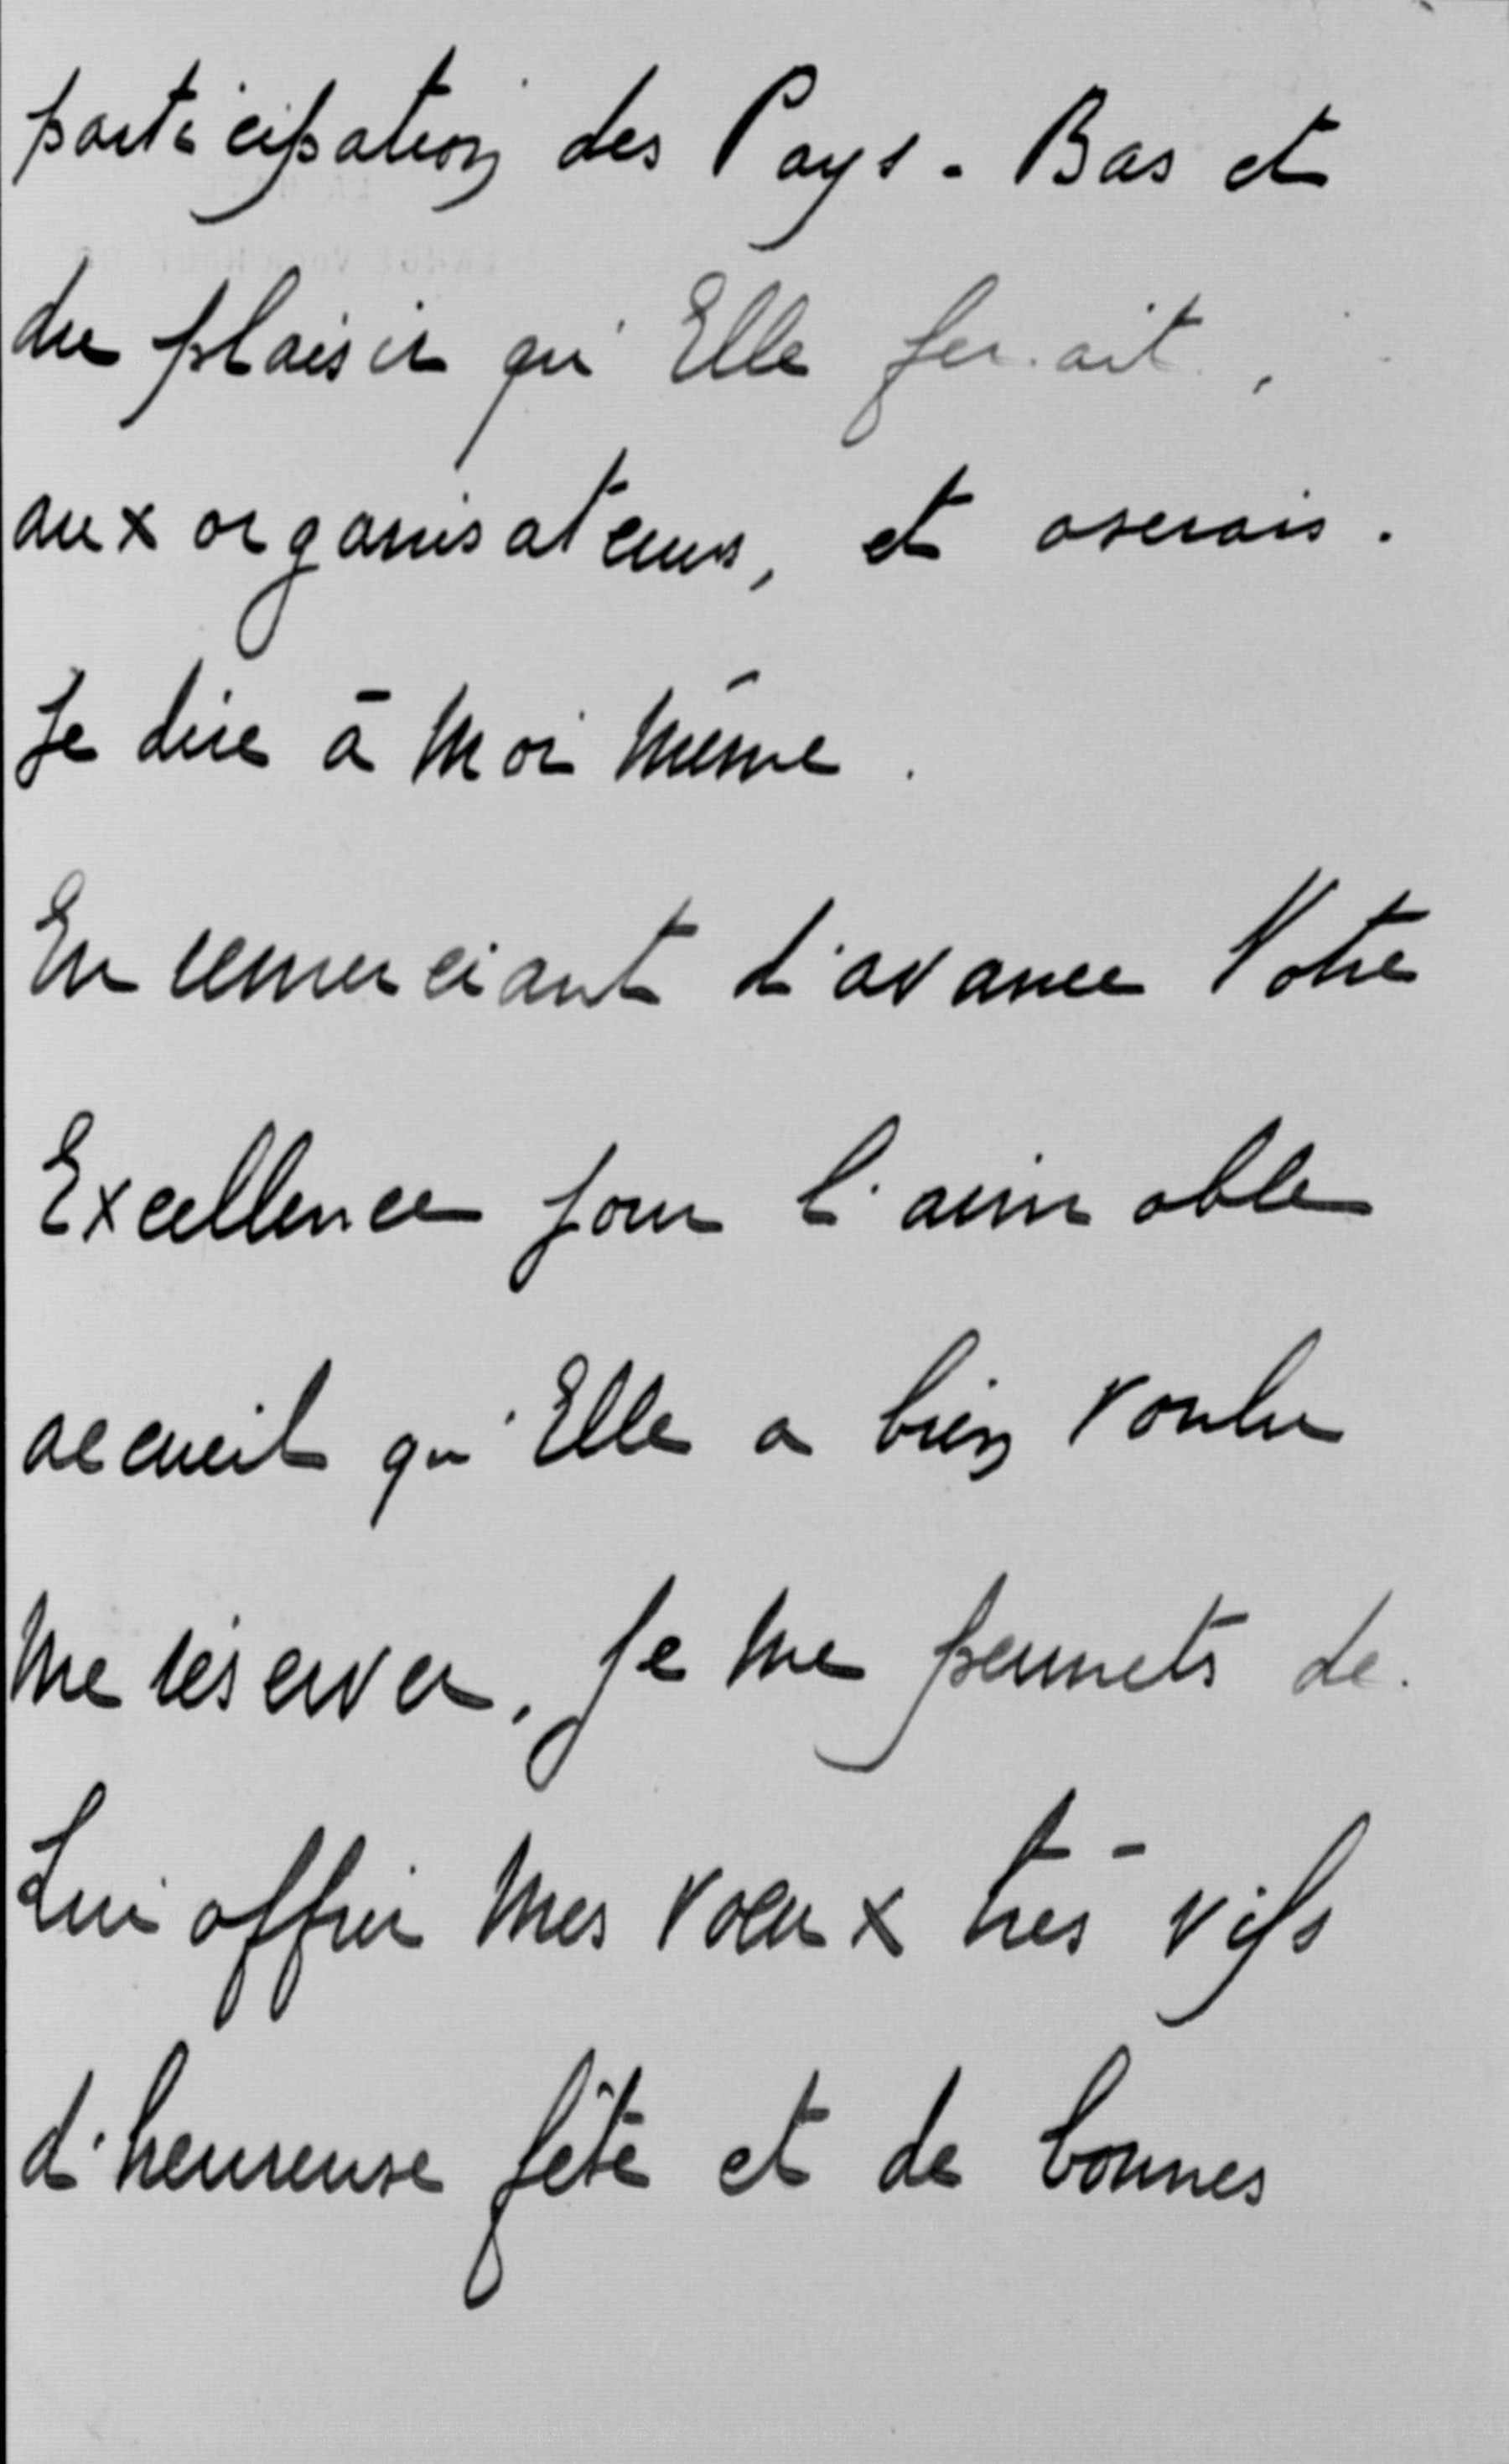 participation des Pays-Bas et
du plaisir qu'Elle ferait,
aux organisateurs, et oserais-
Je dire à moi même.
En remerciant d'avance Votre
Excellence pour l'aimable
accueil qu'Elle a bien voulu
me réserver, Je me permets de
Lui offrir mes vœux très vifs
d'heureuse fête et de bonnes